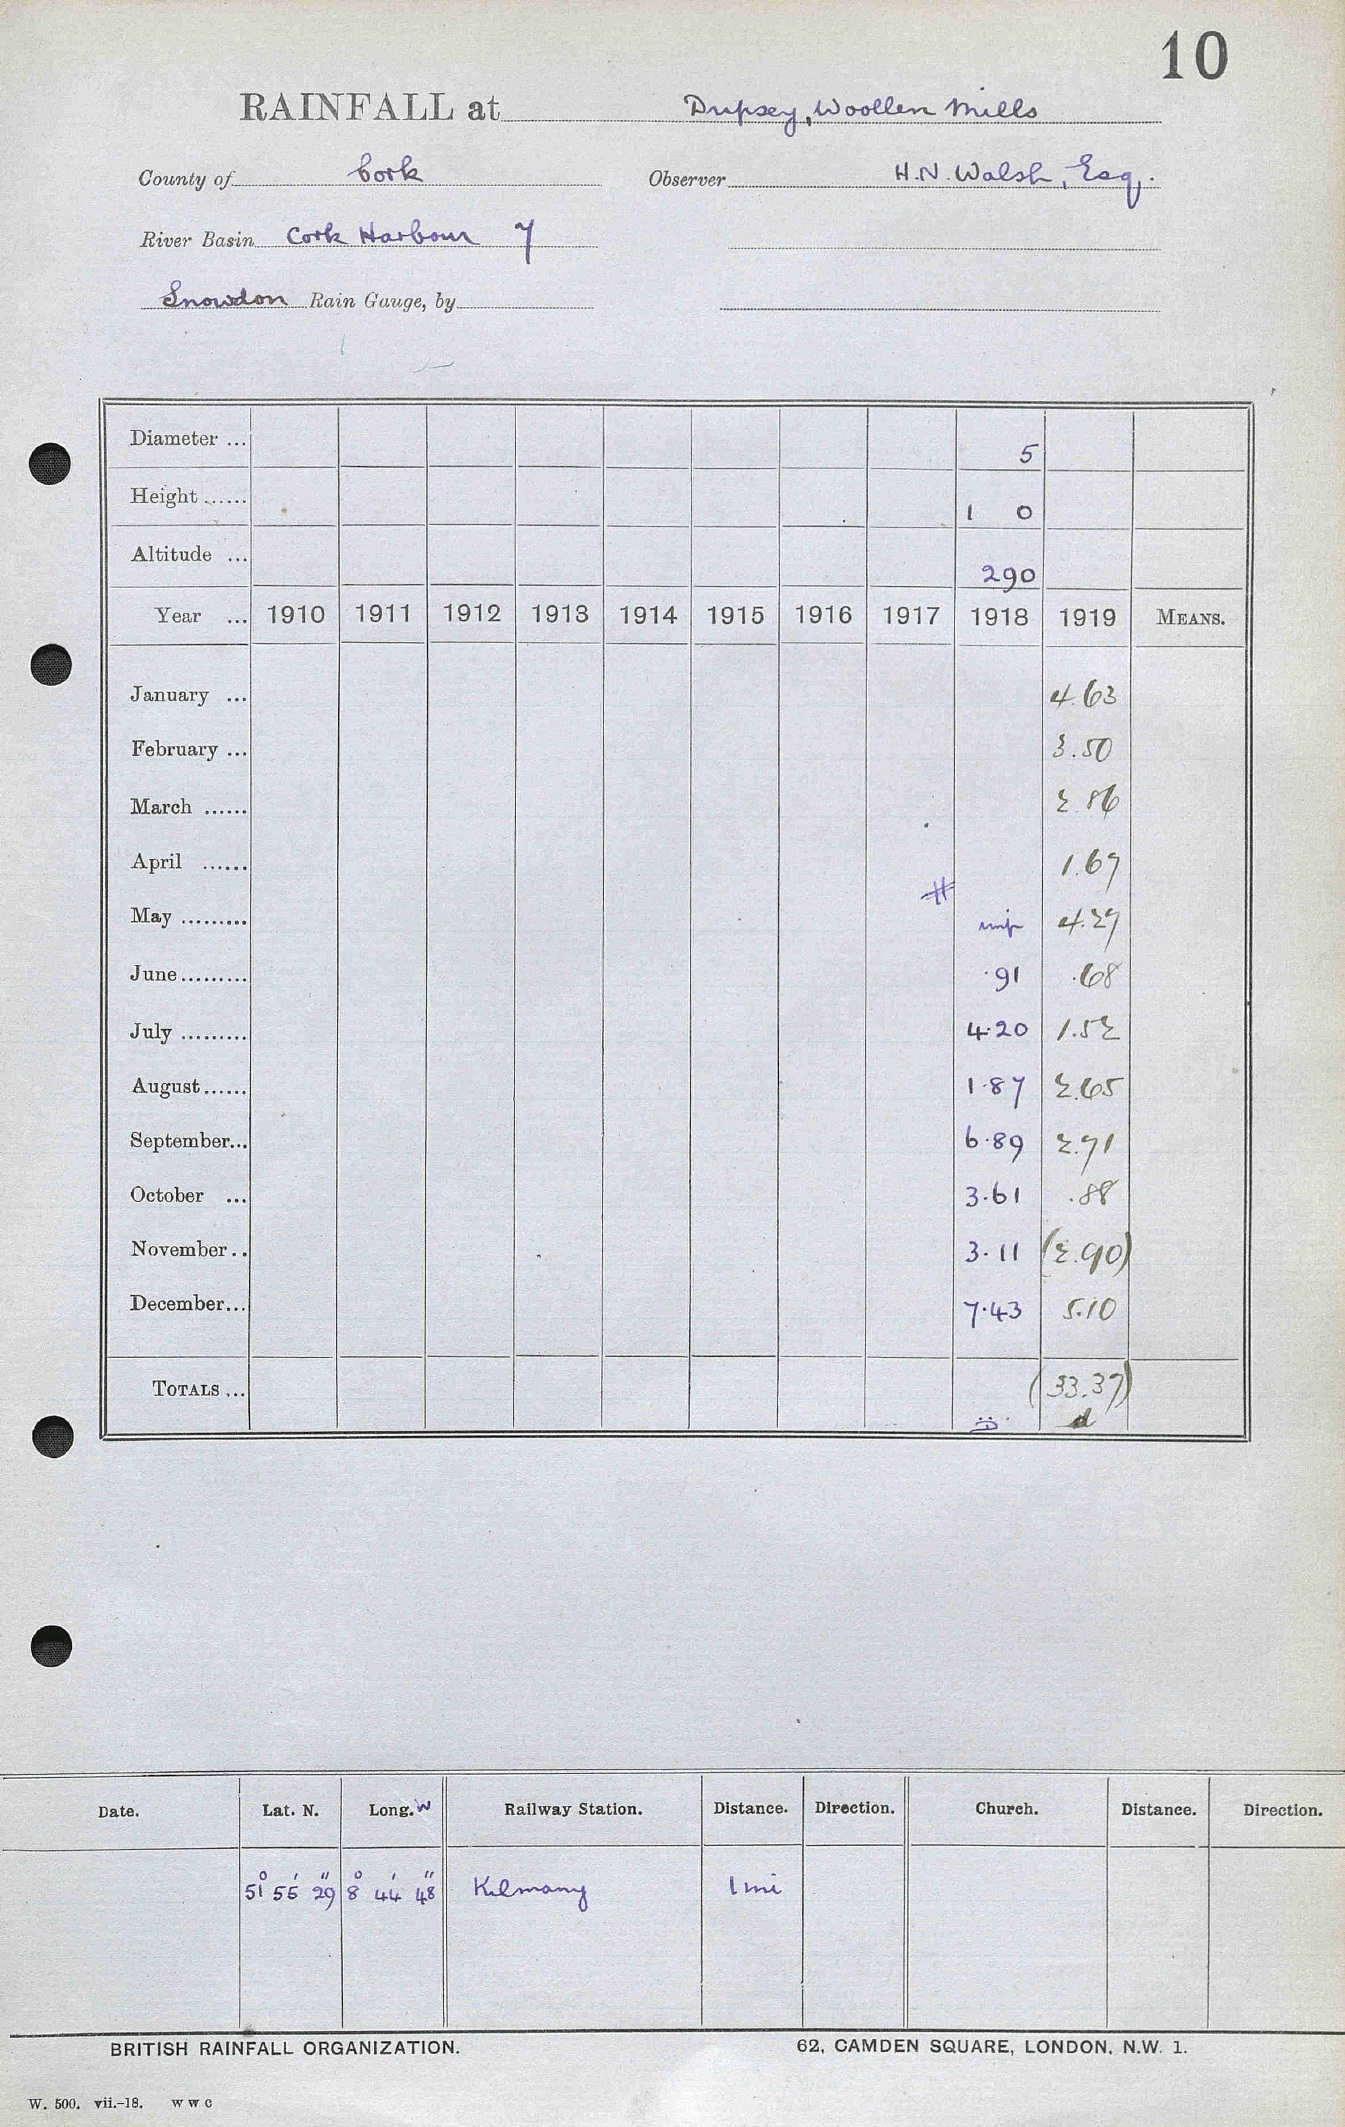 10
RAINFALL at Dripsey, Woollen Mills
County of Cork Observer H.N. Walsh, Esq.
River Basin Cork Harbour 7
Snowdon Rain Gauge, by
Diameter ... 5
Height ...... 1 0
Altitude ... 290
Year ... 1910 1911 1912 1913 1914 1915 1916 1917 1918 1919 MEANS.
January ... 4.63
February ... 3.50
March ...... 2.86
April ...... 1.67
#
May ......... imp 4.27
June ......... ·91 .68
July ......... 4·20 1.52
August ...... 1·87 2.65
September... 6·89 2.71
October ... 3·61 .88
November .. 3·11 (2.90)
December... 7·43 5.10
TOTALS ... (33.37)
d
Date. Lat. N. Long. W Railway Station. Distance. Direction. Church. Distance. Direction.
51° 55' 29" 8° 44' 48" Kilmany 1 mi
BRITISH RAINFALL ORGANIZATION. 62, CAMDEN SQUARE, LONDON, N.W. 1.
W. 500. vii.-18. W W C